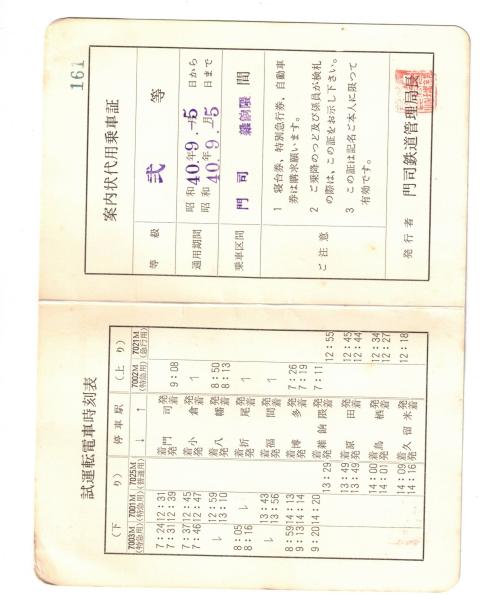 161
案内状代用乗車証
等級 弐等
通用期間 昭和40年9月5日から
昭和40年9月25日まで
乗車区間 門司 雑餉隈 間
ご注意
1 寝台券、特別急行券、自動車券は購求願います。
2 ご乗降のつど及び係員が検札の際は、この証をお示し下さい。
3 この証は記名ご本人に限つて有効です。
発行者 門司鉄道管理局長
試運転電車時刻表
(下り) 停車駅 (上り)
7003M (特急用) 7001M (特急用) 7025M (普通用) ↓ ↑ 7002M (特急用) 7021M (急行用)
7:24 12:31 着 門司 発
7:31 12:39 発 門司 着 9:08
7:37 12:45 着 小倉 発 ↑
7:46 12:47 発 小倉 着
↓ 12:59 着 八幡 発 8:50
13:10 発 八幡 着 8:13
8:05 ↓ 着 折尾 発 ↑
8:16 発 折尾 着
↓ 13:43 着 福間 発 ↑
13:56 発 福間 着
8:59 14:13 着 博多 発 7:26
9:13 14:14 発 博多 着 7:19
9:20 14:20 着 雑餉隈 発 7:11
13:29 発 雑餉隈 着 12:55
13:49 着 原田 発 12:45
13:49 発 原田 着 12:44
14:00 着 鳥栖 発 12:34
14:01 発 鳥栖 着 12:27
14:09 着 久留米 発 12:18
14:16 発 久留米 着